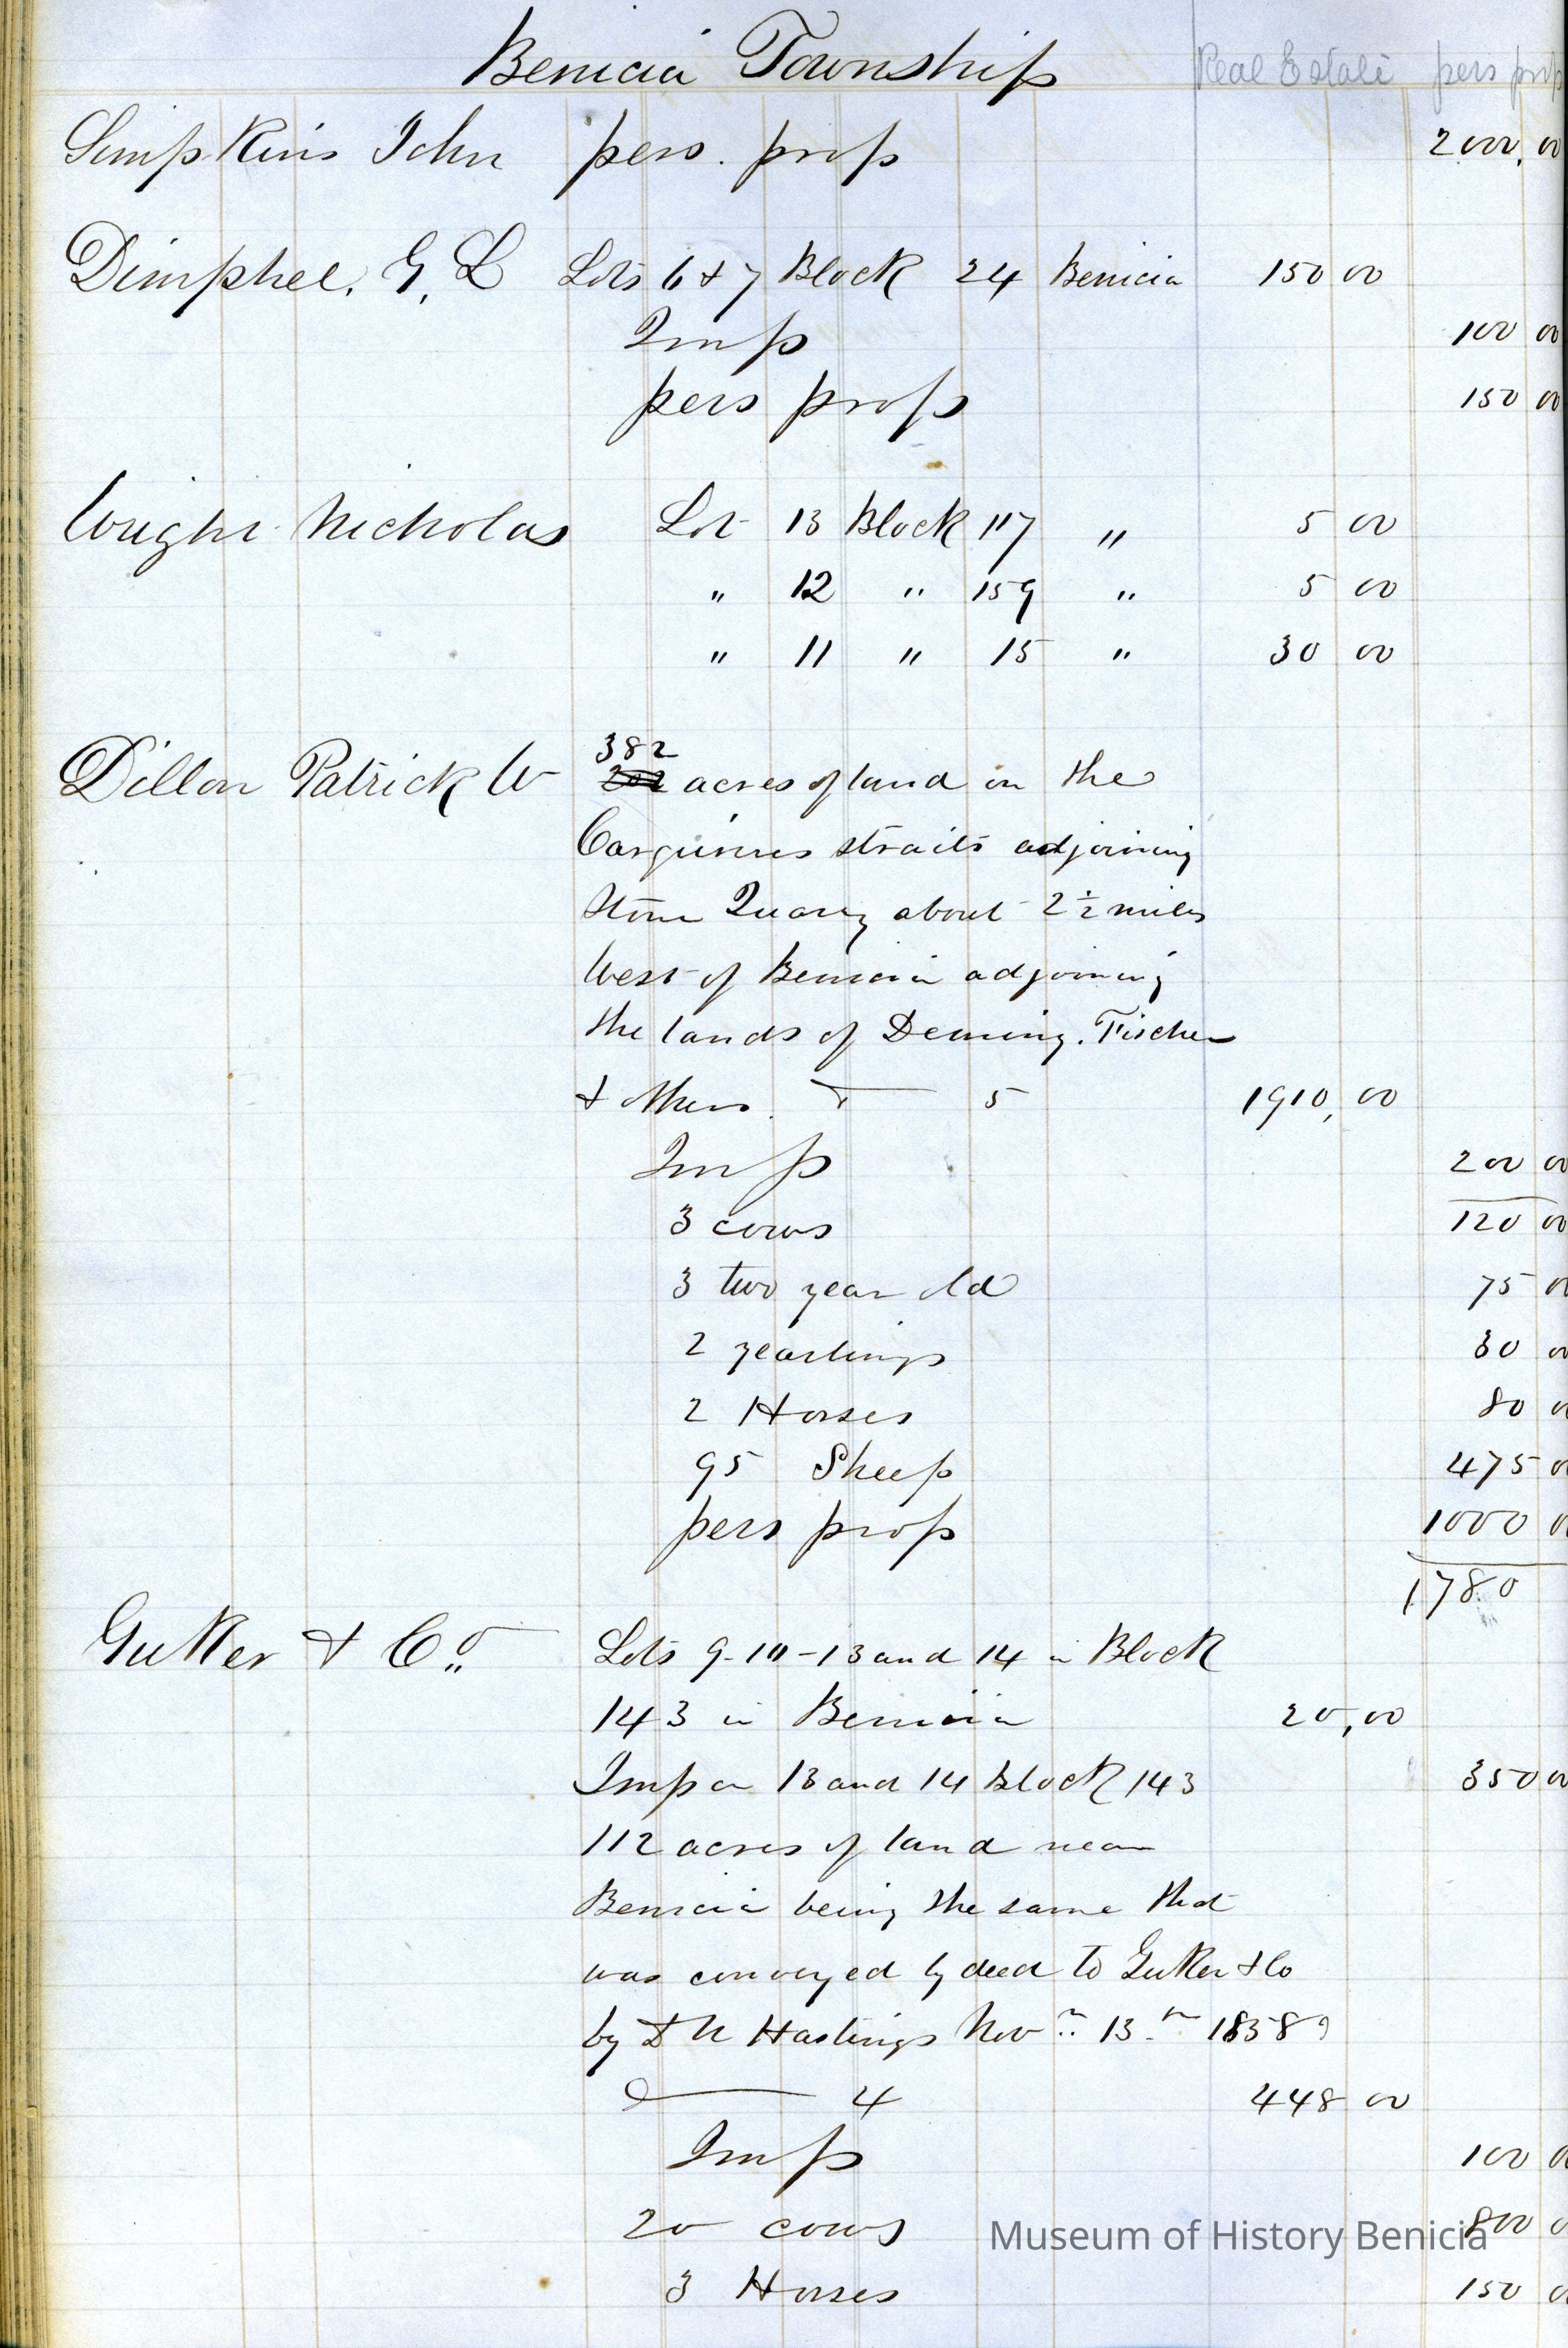 Benicia Township Real Estate pers prop
Simpkins John pers. prop 2000.00
Dimphel, G, L Lots 6 & 7 Block 24 Benicia 150 00
Imp 100 00
pers prop 150 00
Wright Nicholas Lot 13 Block 117 " 5 00
" 12 " 159 " 5 00
" 11 " 15 " 30 00
382
Dillon Patrick W 202 acres of land on the
Carquines straits adjoining
Stone Quarry about 2 1/2 miles
West of Benicia adjoining
the lands of Deming. Fischer
& others. 5 1910,00
Imp 200 00
3 cows 120 00
3 two year old 75 00
2 yearlings 30 00
2 Horses 80 00
95 Sheep 475 00
pers prop 1000 00
1780
Gutter & Co Lots 9-10-13 and 14 in Block
143 in Benicia 20,00
Imp on 13 and 14 Block 143 350 00
112 acres of land near
Benicia being the same that
was conveyed by deed to Gutter & Co
by D N Hastings Nov 13th 1858
4 448 00
Imp 100 00
20 cows 800 00
3 Horses 150 00
Museum of History Benicia